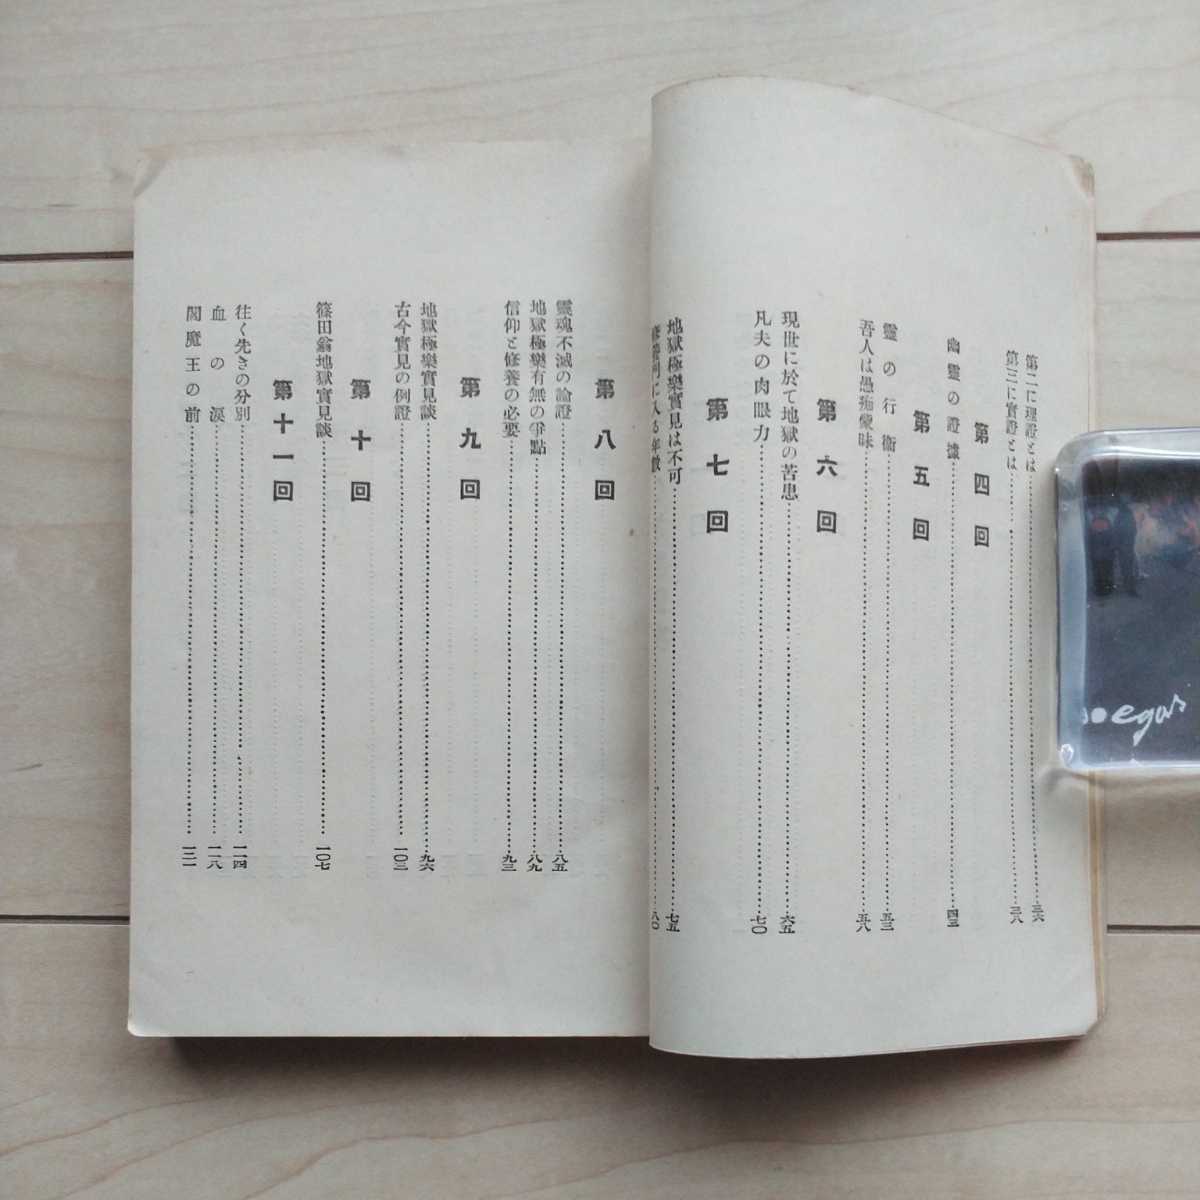 第二に理證とは……三六
第三に實證とは……三八
第四回
幽靈の證據……四三
第五回
靈の行衞……五三
吾人は愚痴蒙昧……五八
第六回
現世に於て地獄の苦患……六五
凡夫の肉眼力……七〇
第七回
地獄極樂實見は不可……七五
に入る年數……八〇
第八回
靈魂不滅の論證……八五
地獄極樂有無の爭點……八九
信仰と修養の必要……九三
第九回
地獄極樂實見談……九六
古今實見の例證……一〇三
第十回
篠田翁地獄實見談……一〇七
第十一回
往く先きの分別……一一四
血の淚……一一八
閻魔王の前……一二一
egas